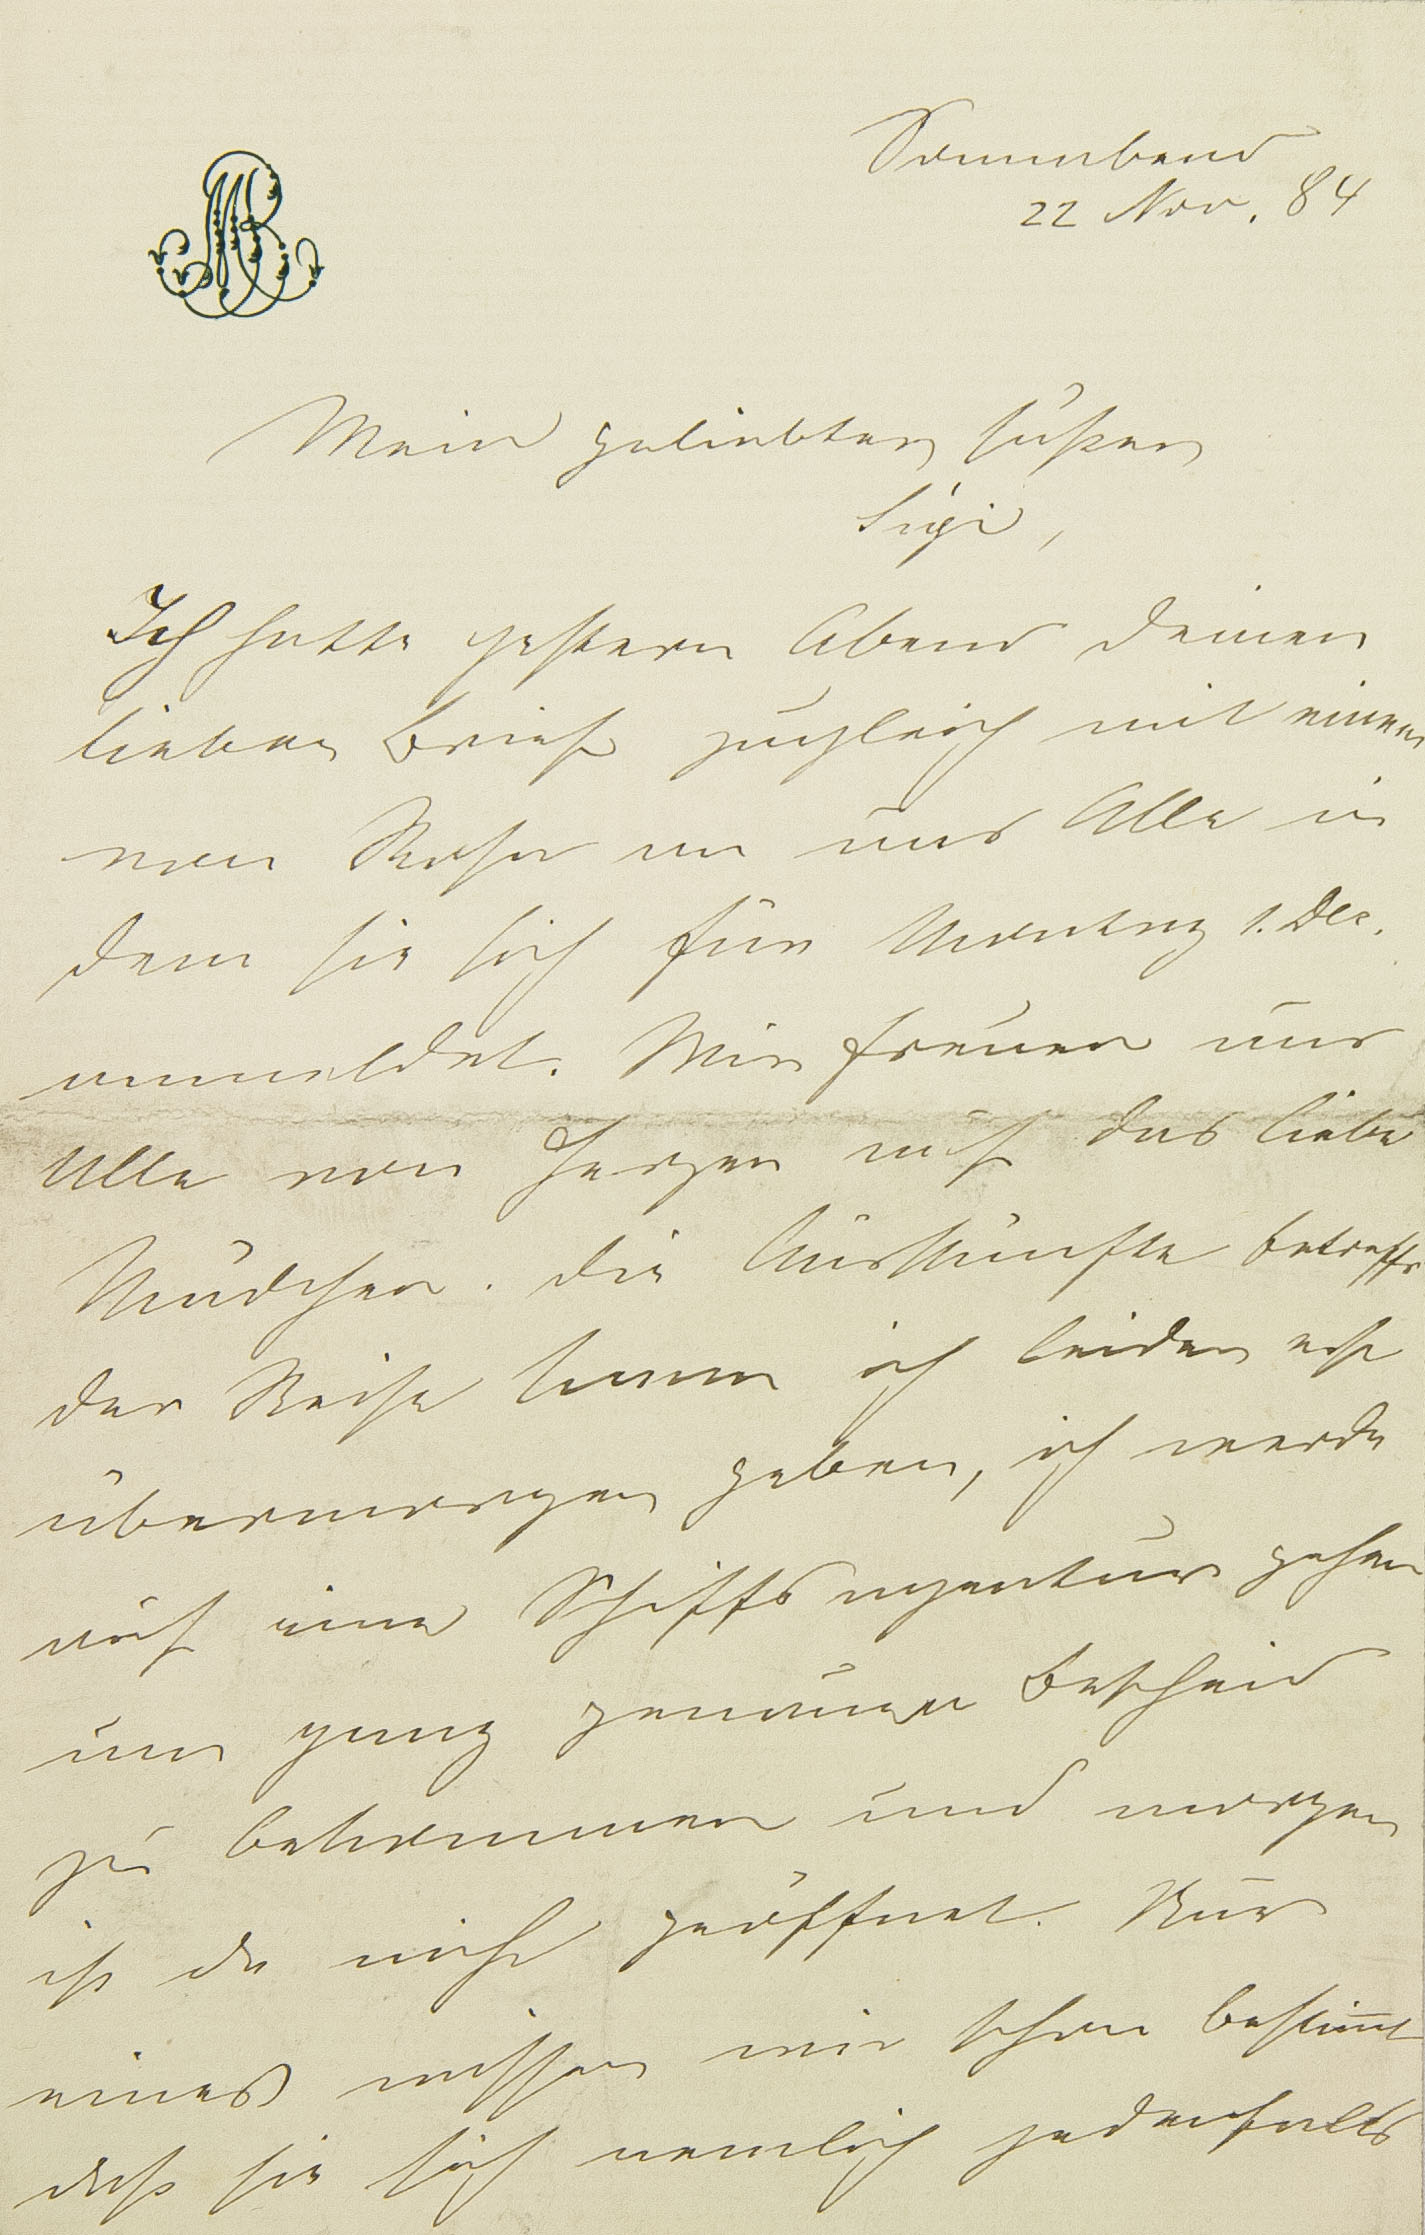 MB
Sonnabend
22 Nov. 84
Mein geliebter, süßer
Sigi,
Ich hatte gestern Abend Deinen
lieben Brief zugleich mit einem
von Rosa an uns Alle in
dem sie sich für Montag 1. Dec.
anmeldet. Wir freuen uns
Alle von Herzen auf das liebe
Mädchen. Die Auskünfte betreffs
der Reise kann ich leider erst
übermorgen geben, ich werde
auf eine Schiffsagentur gehen
um ganz genauen Bescheid
zu bekommen und morgen
ist da nicht geöffnet. Nur
eines wissen wir schon bestim̅t
daß sie sich nemlich jedenfalls